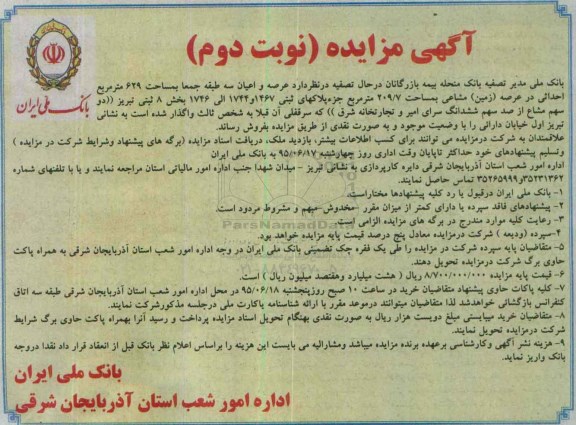 آگهی مزایده (نوبت دوم)
بانک ملی ایران
بانک ملی مدیر تصفیه بانک منحله بیمه بازرگانان درحال تصفیه درنظردارد عرصه و اعیان سه طبقه جمعا بمساحت ۶۲۹ مترمربع
احداثی در عرصه (زمین) مشاعی بمساحت ۲۰۹/۷ مترمربع جزءپلاکهای ثبتی ۱۴۶۷و۱۷۴۴ الی ۱۷۴۶ بخش ۸ ثبتی تبریز ((دو
سهم مشاع از صد سهم ششدانگ سرای امیر و تجارتخانه شرق )) که سرقفلی آن قبلا به شخص ثالث واگذار شده است به نشانی
تبریز اول خیابان دارائی را با وضعیت موجود و به صورت نقدی از طریق مزایده بفروش رساند.
علاقمندان به شرکت درمزایده می توانند برای کسب اطلاعات بیشتر، بازدید ملک، دریافت اسناد مزایده (برگه های پیشنهاد وشرایط شرکت در مزایده )
وتسلیم پیشنهادهای خود حداکثر تاپایان وقت اداری روز چهارشنبه ۹۵/۰۶/۱۷ به بانک ملی ایران
اداره امور شعب استان آذربایجان شرقی دایره کارپردازی به نشانی تبریز - میدان شهدا جنب اداره امور مالیاتی استان مراجعه نمایند و یا با تلفنهای شماره
۳۵۲۳۱۳۶۲و ۳۵۲۶۵۹۹۹ تماس حاصل نمایند.
۱- بانک ملی ایران درقبول یا رد کلیه پیشنهادها مختاراست.
۲- پیشنهادهای فاقد سپرده یا دارای کمتر از میزان مقرر -مخدوش- مبهم و مشروط مردود است.
۳- رعایت کلیه موارد مندرج در برگه های مزایده الزامی است.
۴-سپرده (ودیعه ) شرکت درمزایده معادل پنج درصد قیمت پایه مزایده خواهد بود.
۵- متقاضیان پایه سپرده شرکت در مزایده را طی یک فقره چک تضمینی بانک ملی ایران در وجه اداره امور شعب استان آذربایجان شرقی به همراه پاکت
حاوی برگ شرکت درمزایده تحویل دهند.
۶- قیمت پایه مزایده ۸/۷۰۰/۰۰۰/۰۰۰ ریال ( هشت میلیارد وهفتصد میلیون ریال ) است.
۷- کلیه پاکات حاوی پیشنهاد متقاضیان خرید در ساعت ۱۰ صبح روزپنجشنبه ۹۵/۰۶/۱۸ در محل اداره امور شعب استان آذربایجان شرقی طبقه سه اتاق
کنفرانس بازگشائی خواهدشد لذا متقاضیان میتوانند درموعد مقرر با ارائه شناسنامه یاکارت ملی درجلسه مذکورشرکت نمایند.
۸- متقاضیان خرید میبایستی مبلغ دویست هزار ریال به صورت نقدی بهنگام تحویل اسناد مزایده پرداخت و رسید آنرا بهمراه پاکت حاوی برگ شرایط
شرکت درمزایده تحویل نمایند.
۹- هزینه نشر آگهی وکارشناسی برعهده برنده مزایده میباشد ومشارالیه می بایست این هزینه را براساس اعلام نظر بانک قبل از انعقاد قرار داد نقدا دروجه
بانک واریز نماید.
بانک ملی ایران
اداره امور شعب استان آذربایجان شرقی